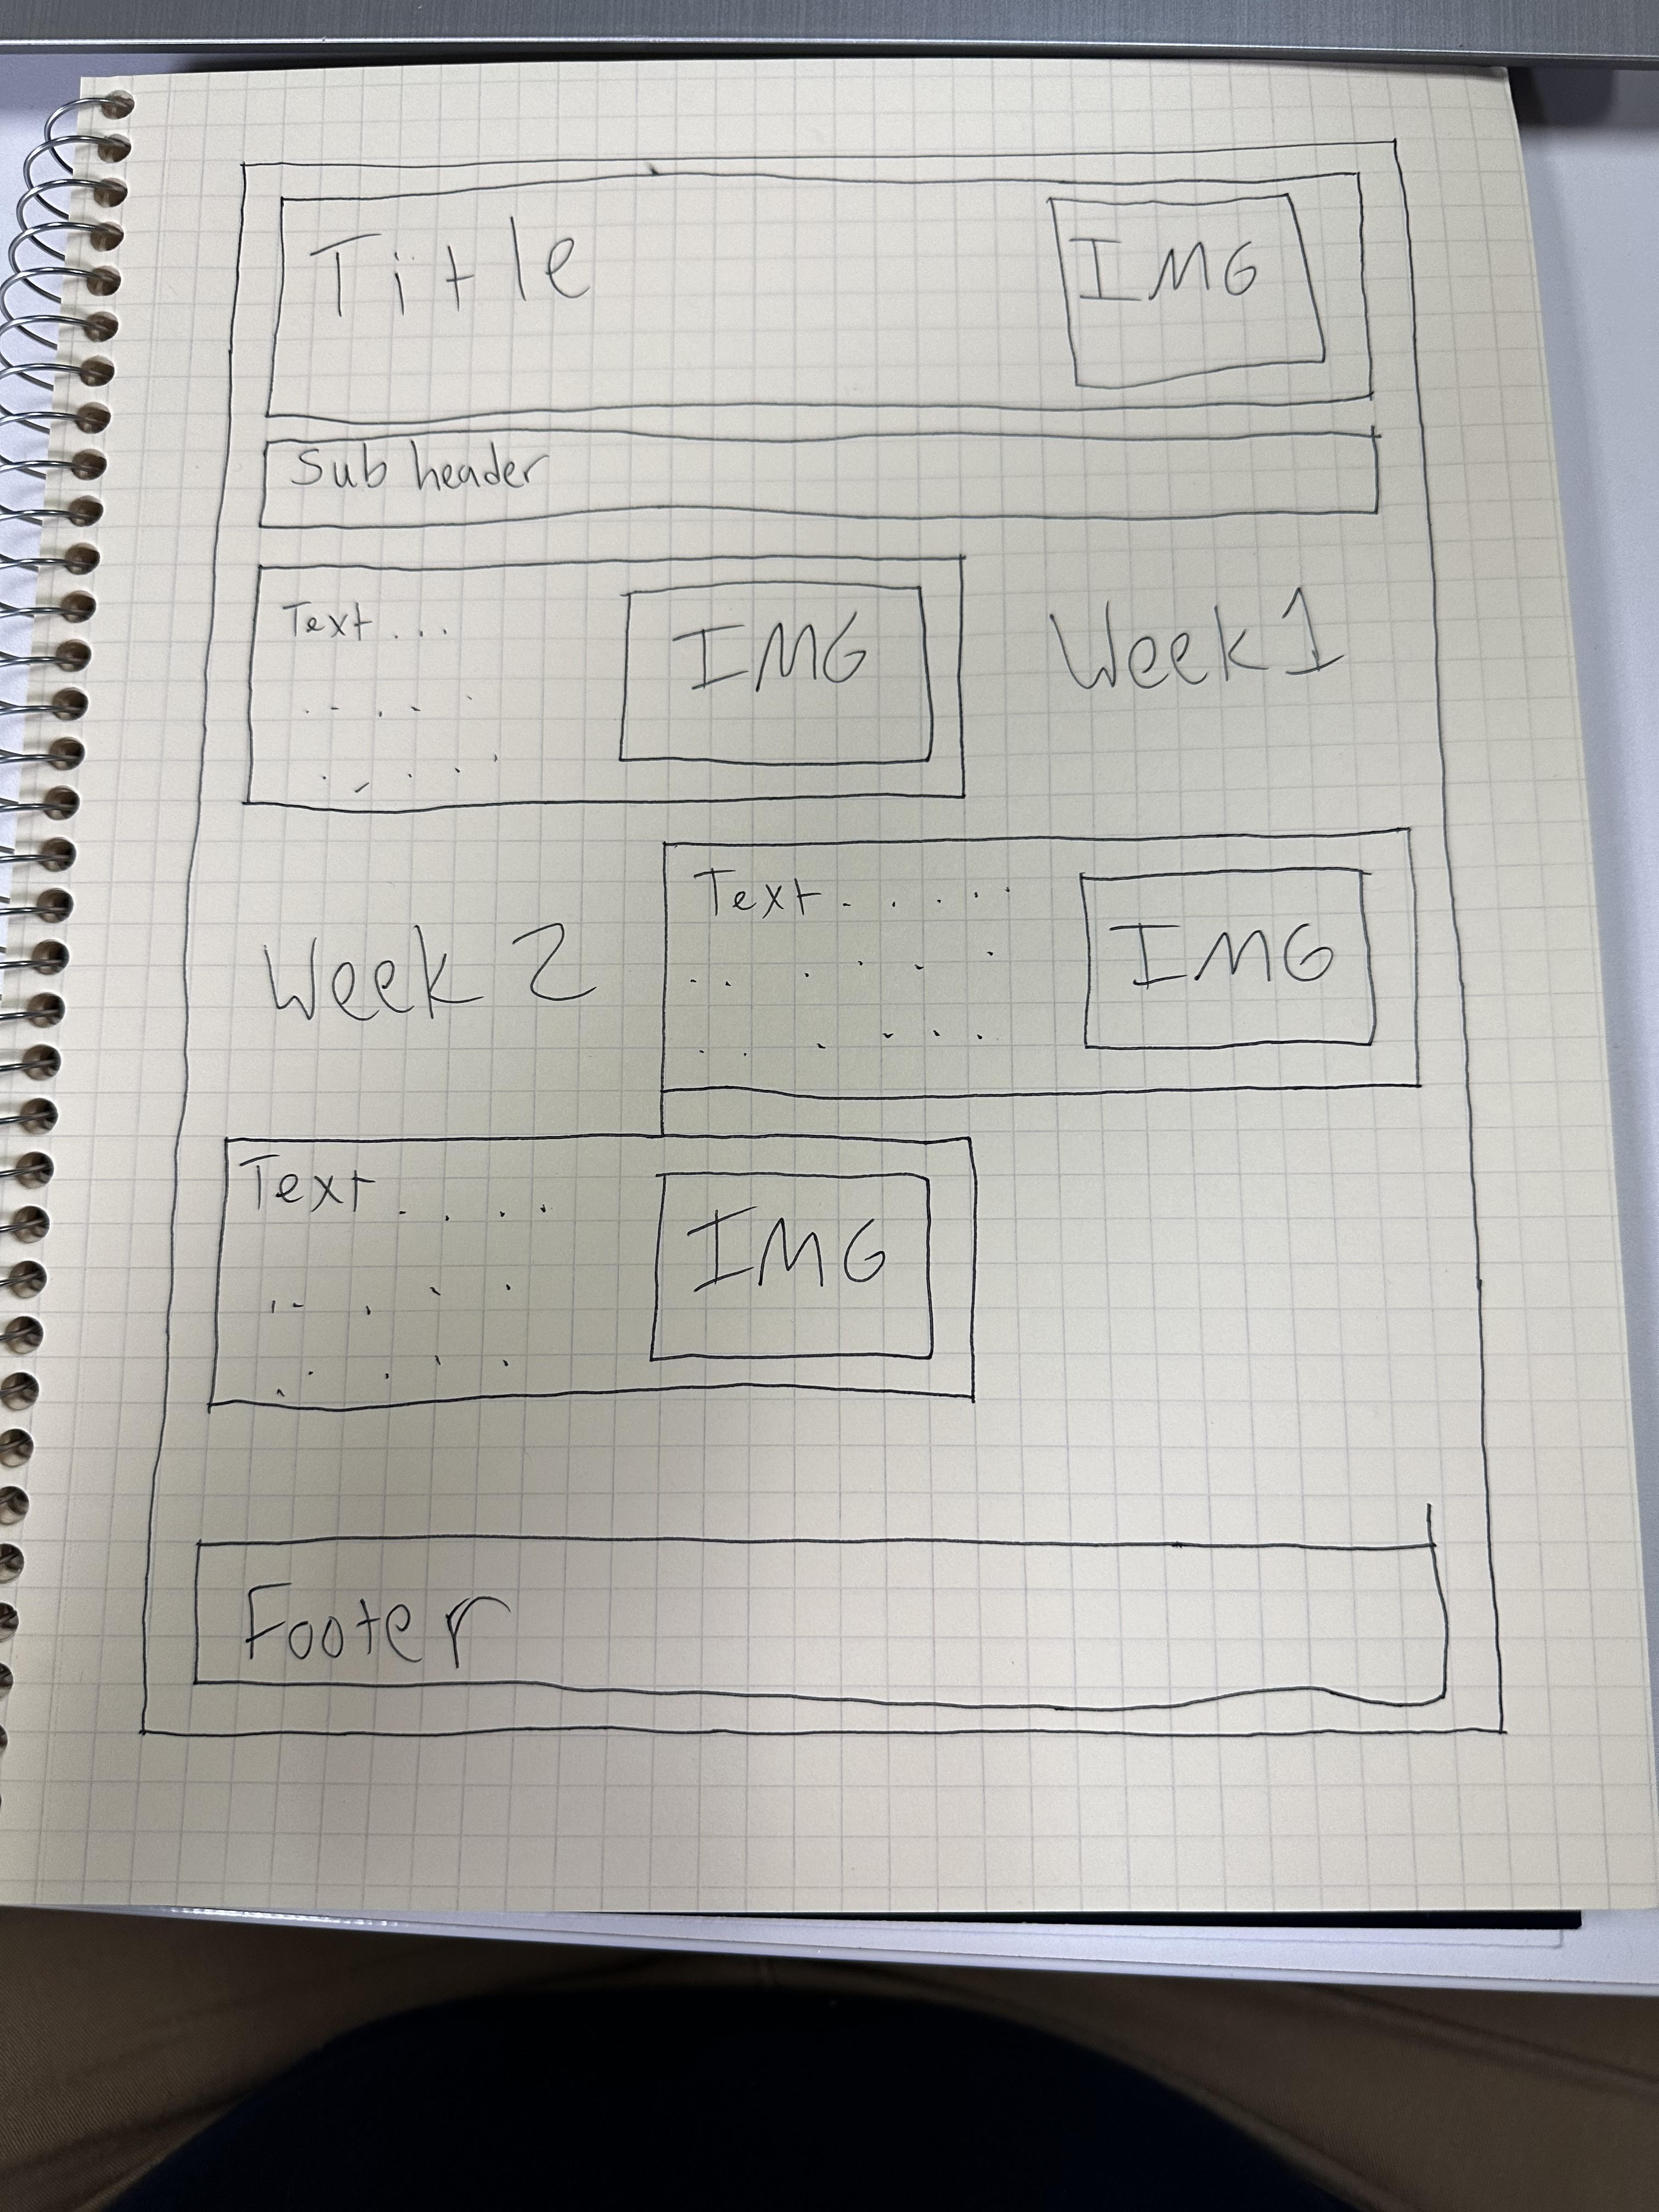 Title IMG
Sub header
Text... IMG Week 1
Week 2 Text..... IMG
Text.... IMG
Footer